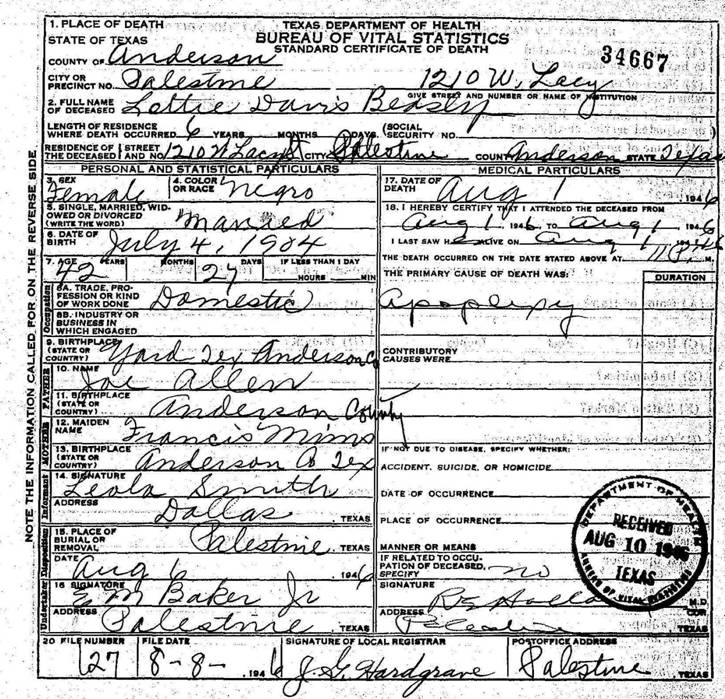 1. PLACE OF DEATH
TEXAS DEPARTMENT OF HEALTH
BUREAU OF VITAL STATISTICS
STANDARD CERTIFICATE OF DEATH
34667
STATE OF TEXAS
COUNTY OF Anderson
CITY OR PRECINCT NO. Palestine 1210 W. Lacy
GIVE STREET AND NUMBER OR NAME OF INSTITUTION
2. FULL NAME OF DECEASED Lottie Davis Beasly
LENGTH OF RESIDENCE WHERE DEATH OCCURRED 6 YEARS MONTHS DAYS (SOCIAL SECURITY NO.
RESIDENCE OF THE DECEASED STREET AND NO. 1210 W Lacy St CITY Palestine COUNTY Anderson STATE Texas
PERSONAL AND STATISTICAL PARTICULARS
3. SEX Female 4. COLOR OR RACE Negro
5. SINGLE, MARRIED, WIDOWED OR DIVORCED (WRITE THE WORD) Married
6. DATE OF BIRTH July 4, 1904
7. AGE 42 YEARS MONTHS 27 DAYS IF LESS THAN 1 DAY HOURS MIN
Occupation
8A. TRADE, PROFESSION OR KIND OF WORK DONE Domestic
8B. INDUSTRY OR BUSINESS IN WHICH ENGAGED
9. BIRTHPLACE (STATE OR COUNTRY) Yard Tex Anderson Co
FATHER
10. NAME Joe Allen
11. BIRTHPLACE (STATE OR COUNTRY) Anderson County
MOTHER
12. MAIDEN NAME Francis Mims
13. BIRTHPLACE (STATE OR COUNTRY) Anderson Co Tex
Informant
14. SIGNATURE Leola Smith
ADDRESS Dallas TEXAS
Disposition
15. PLACE OF BURIAL OR REMOVAL Palestine TEXAS
DATE Aug 6 1946
Undertaker
16 SIGNATURE E M Baker Jr
ADDRESS Palestine TEXAS
MEDICAL PARTICULARS
17. DATE OF DEATH Aug 1 1946
18. I HEREBY CERTIFY THAT I ATTENDED THE DECEASED FROM
Aug 1 1946 TO Aug 1 1946
I LAST SAW H ALIVE ON Aug 1 1946
THE DEATH OCCURRED ON THE DATE STATED ABOVE AT M.
THE PRIMARY CAUSE OF DEATH WAS: DURATION
Apoplexy
CONTRIBUTORY CAUSES WERE
IF NOT DUE TO DISEASE, SPECIFY WHETHER:
ACCIDENT, SUICIDE, OR HOMICIDE
DATE OF OCCURRENCE
PLACE OF OCCURRENCE
MANNER OR MEANS
IF RELATED TO OCCUPATION OF DECEASED, SPECIFY no
SIGNATURE M.D.
ADDRESS Palestine TEXAS
DEPARTMENT OF HEALTH
RECEIVED
AUG 10 1946
TEXAS
BUREAU OF VITAL STATISTICS
20 FILE NUMBER 127
FILE DATE 8-8- 1946
SIGNATURE OF LOCAL REGISTRAR J. G. Hardgrave
POSTOFFICE ADDRESS Palestine TEXAS
NOTE THE INFORMATION CALLED FOR ON THE REVERSE SIDE